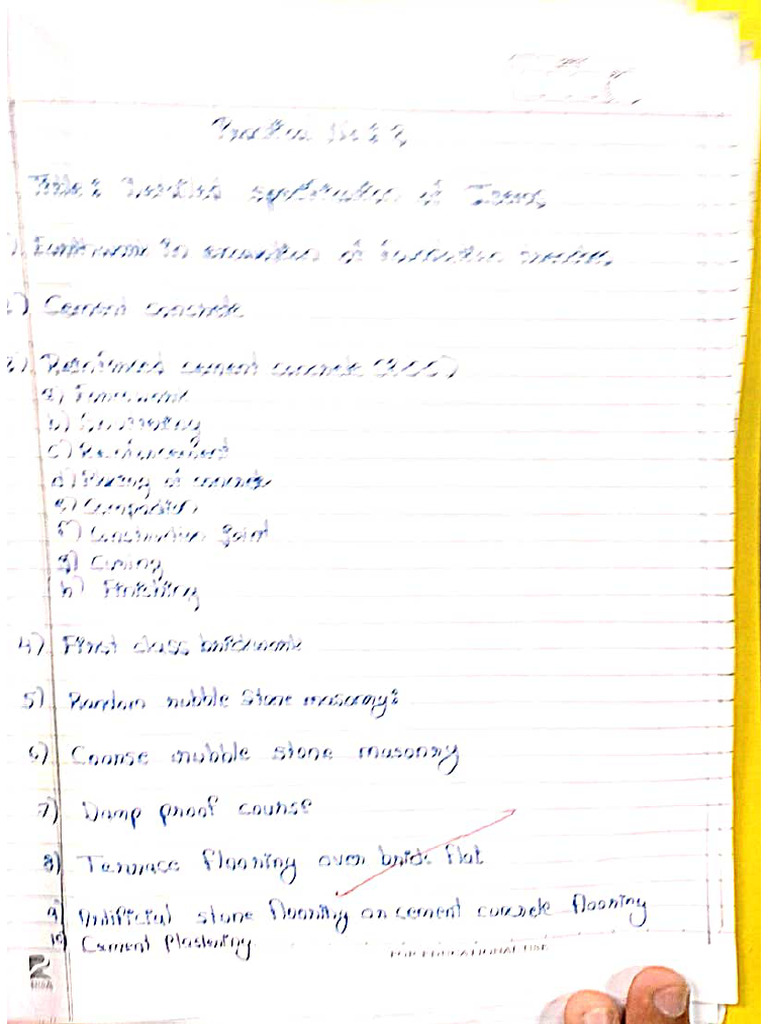 Practical No: 2
Title: Detailed specification of Items
1) Earthwork in excavation of foundation trenches
2) Cement concrete
3) Reinforced cement concrete (RCC)
a) Formwork
b)
c) Reinforcement
d) Placing of concrete
e) Compaction
f) Construction Joint
g) Curing
h) Finishing
4) First class brickwork
5) Random rubble stone masonry:
6) Coarse rubble stone masonry
7) Damp proof course
8) Terrace flooring over brick flat
9) Artificial stone flooring or cement concrete flooring
10) Cement Plastering
FOR EDUCATIONAL USE